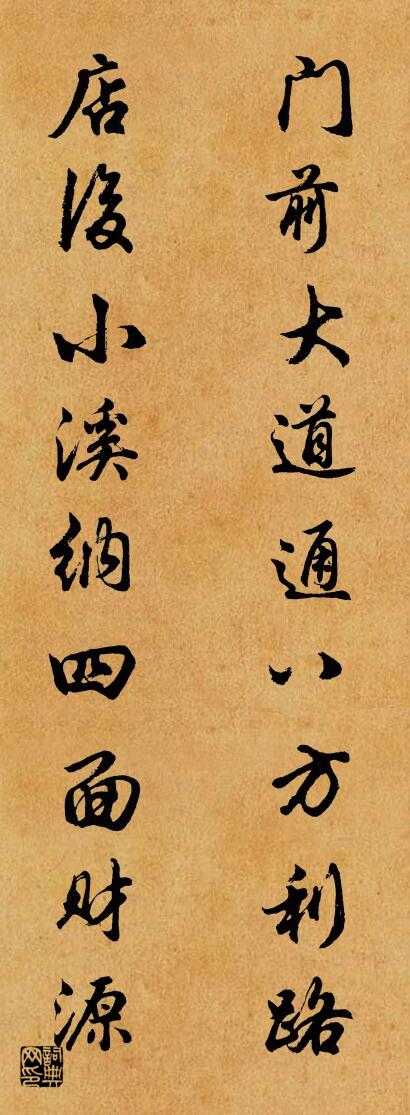 门前大道通八方利路
店後小溪纳四面财源
詞典網印